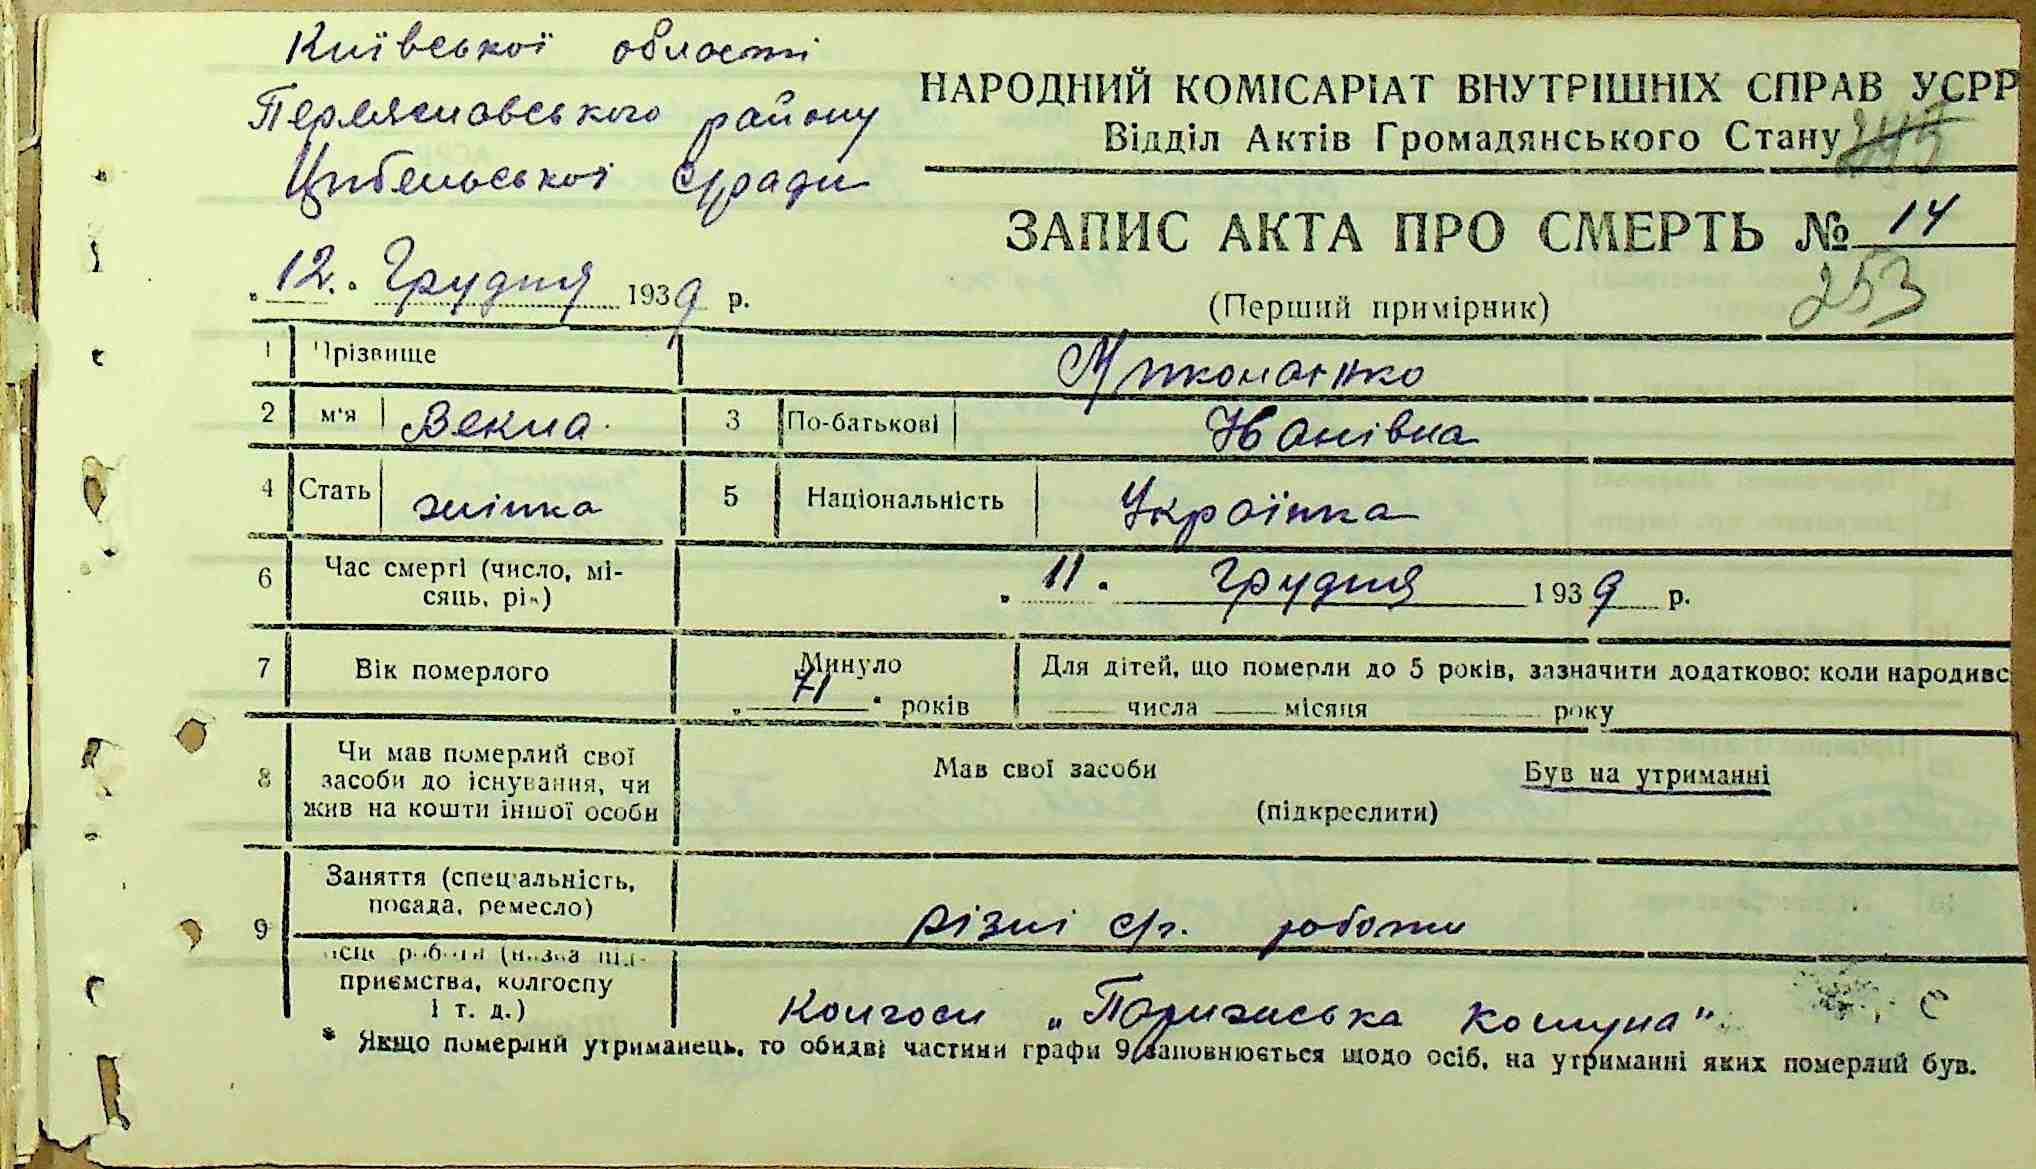 Київської області
Переяславського району
Цибельської с/ради
НАРОДНИЙ КОМІСАРІАТ ВНУТРІШНІХ СПРАВ УСРР
Відділ Актів Громадянського Стану 245
ЗАПИС АКТА ПРО СМЕРТЬ № 14
253
(Перший примірник)
„12.“ Грудня 1939 р.
1 Прізвище Миколаєнко
2 м'я Векла 3 По-батькові Іванівна
4 Стать жінка 5 Національність Українка
6 Час смерті (число, мі-
сяць, рік) „11.“ грудня 1939 р.
7 Вік померлого Минуло
„71“ років
Для дітей, що померли до 5 років, зазначити додатково: коли народивс
числа місяця року
8 Чи мав померлий свої
засоби до існування, чи
жив на кошти іншої особи
Мав свої засоби Був на утриманні
(підкреслити)
9 Заняття (спеціальність,
посада, ремесло) різні с/г. роботи
ісце роботи (назва під-
приємства, колгоспу
і т. д.) Колгосп „Паризька комуна"
* Якщо померлий утриманець, то обидві частини графи 9 заповнюється щодо осіб, на утриманні яких померлий був.